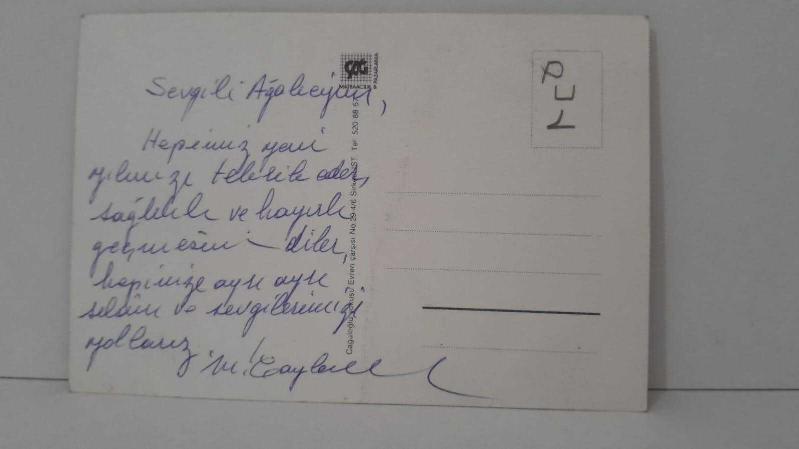 Sevgili Ağabeyim,
Hepiniz yeni
yılınızı tebrik eder,
sağlıklı ve hayırlı
geçmesini diler,
hepinize ayrı ayrı
selâm ve sevgilerimizi
yollarız
M.
ÇAĞ
MATBAACILIK
Cağaloğlu Yokuşu Evren çarşısı No. 29-4/6 Tel: 520 88
PUL